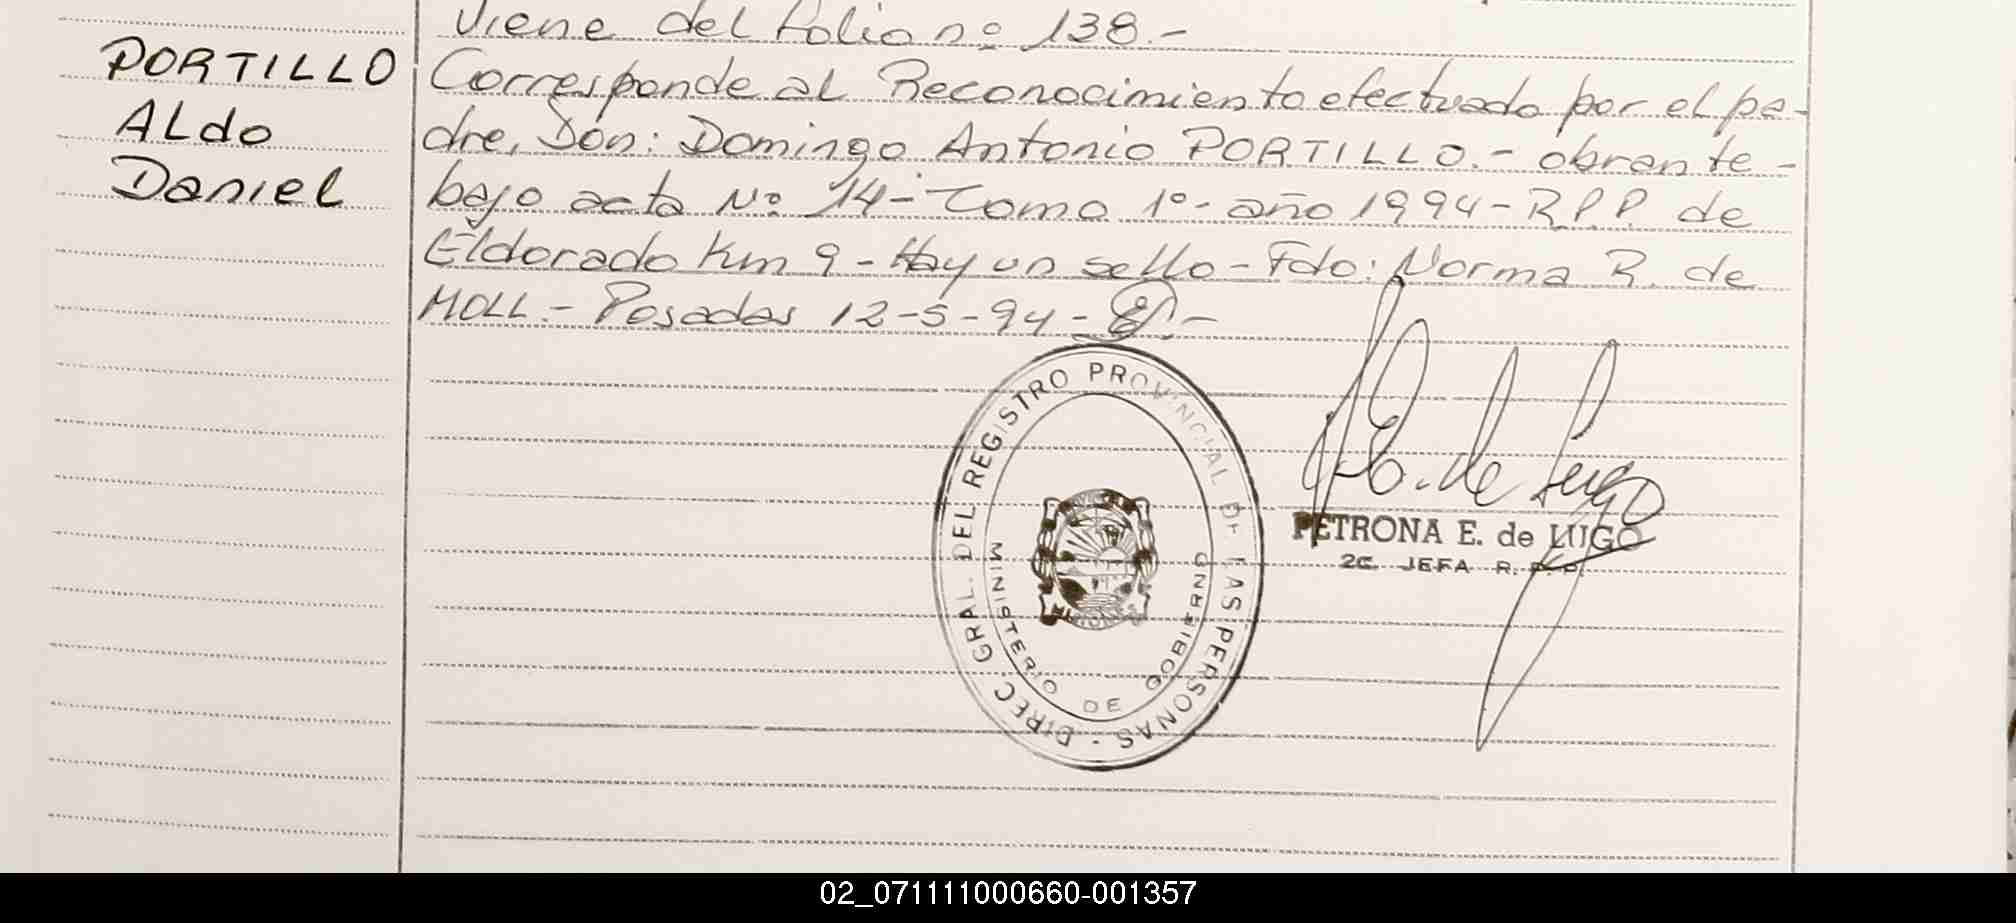 Viene del folio nº 138.-
PORTILLO
Aldo
Daniel
Corresponde al Reconocimiento efectuado por el pa-
dre, Don: Domingo Antonio PORTILLO.- obrante-
bajo acta Nº 14- Tomo 1º- año 1994- R.P.P. de
Eldorado Km 9 - Hay un sello - Fdo: Norma R. de
MOLL.- Posadas 12-5-94-
DIREC. GRAL. DEL REGISTRO PROVINCIAL DE LAS PERSONAS -
MINISTERIO DE GOBIERNO
P.E. de Lugo
PETRONA E. de LUGO
2ª JEFA R. P. P.
02_071111000660-001357